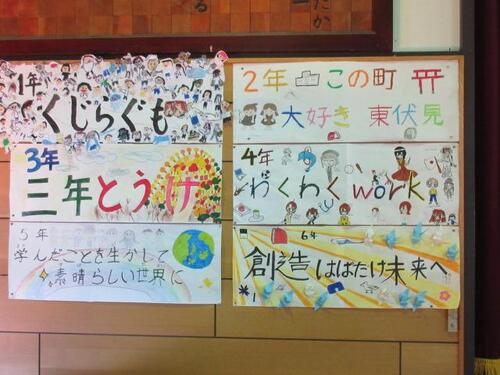 たか
る
1年
くじらぐも
2年 この町
大好き 東伏見
3年
三年とうげ
4年
わくわくwork
5年
学んだことを生かして
素晴らしい世界に
6年
創造 はばたけ未来へ